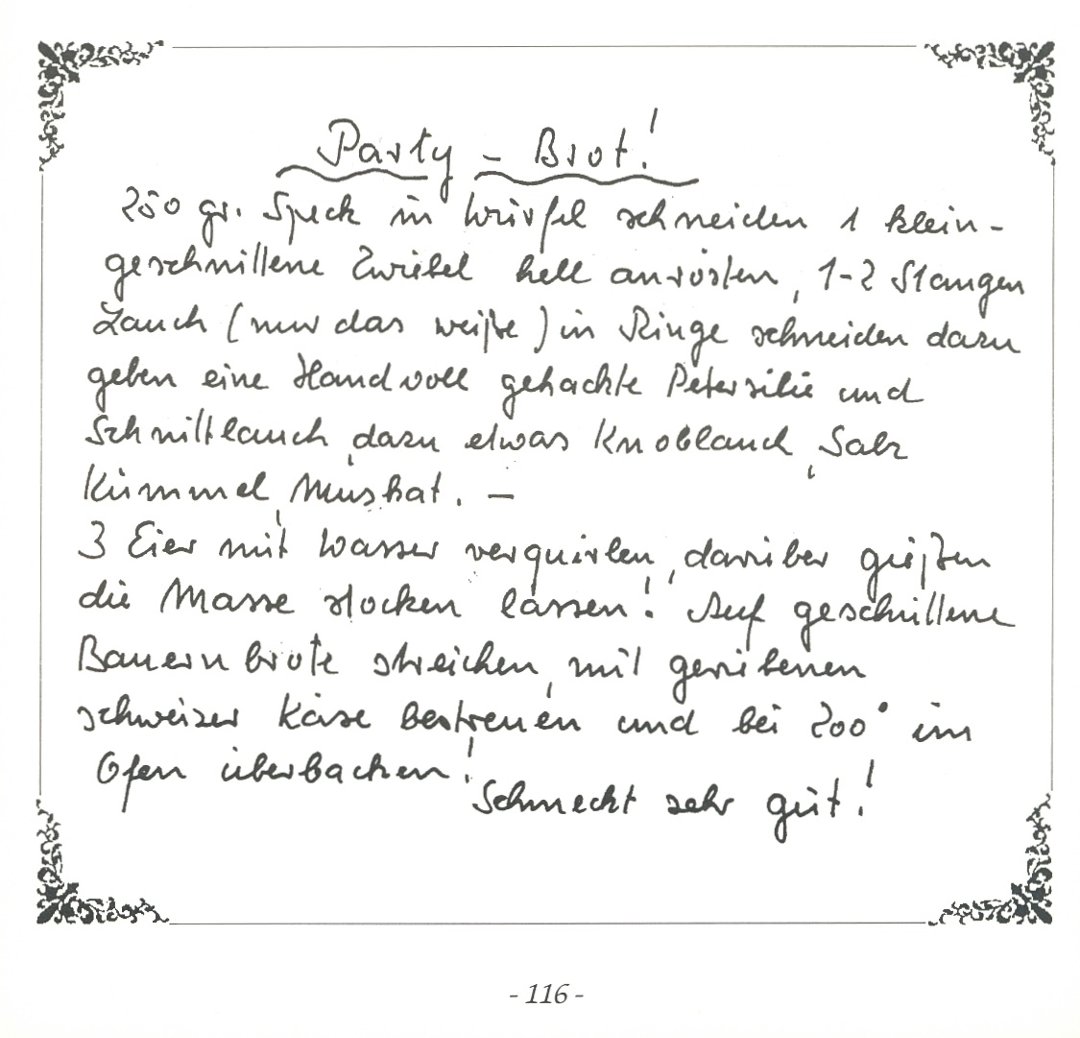 Party - Brot!
250 gr. Speck in Würfel schneiden 1 klein-
geschnittene Zwiebel hell anrösten, 1-2 Stangen
Lauch (nur das weiße) in Ringe schneiden dazu
geben eine Handvoll gehackte Petersilie und
Schnittlauch, dazu etwas Knoblauch, Salz
Kümmel, Muskat. -
3 Eier mit Wasser verquirlen, darüber gießen
die Masse stocken lassen! Auf geschnittene
Bauernbrote streichen, mit geriebenen
schweizer Käse bestreuen und bei 200° im
Ofen überbacken!
Schmeckt sehr gut!
- 116 -